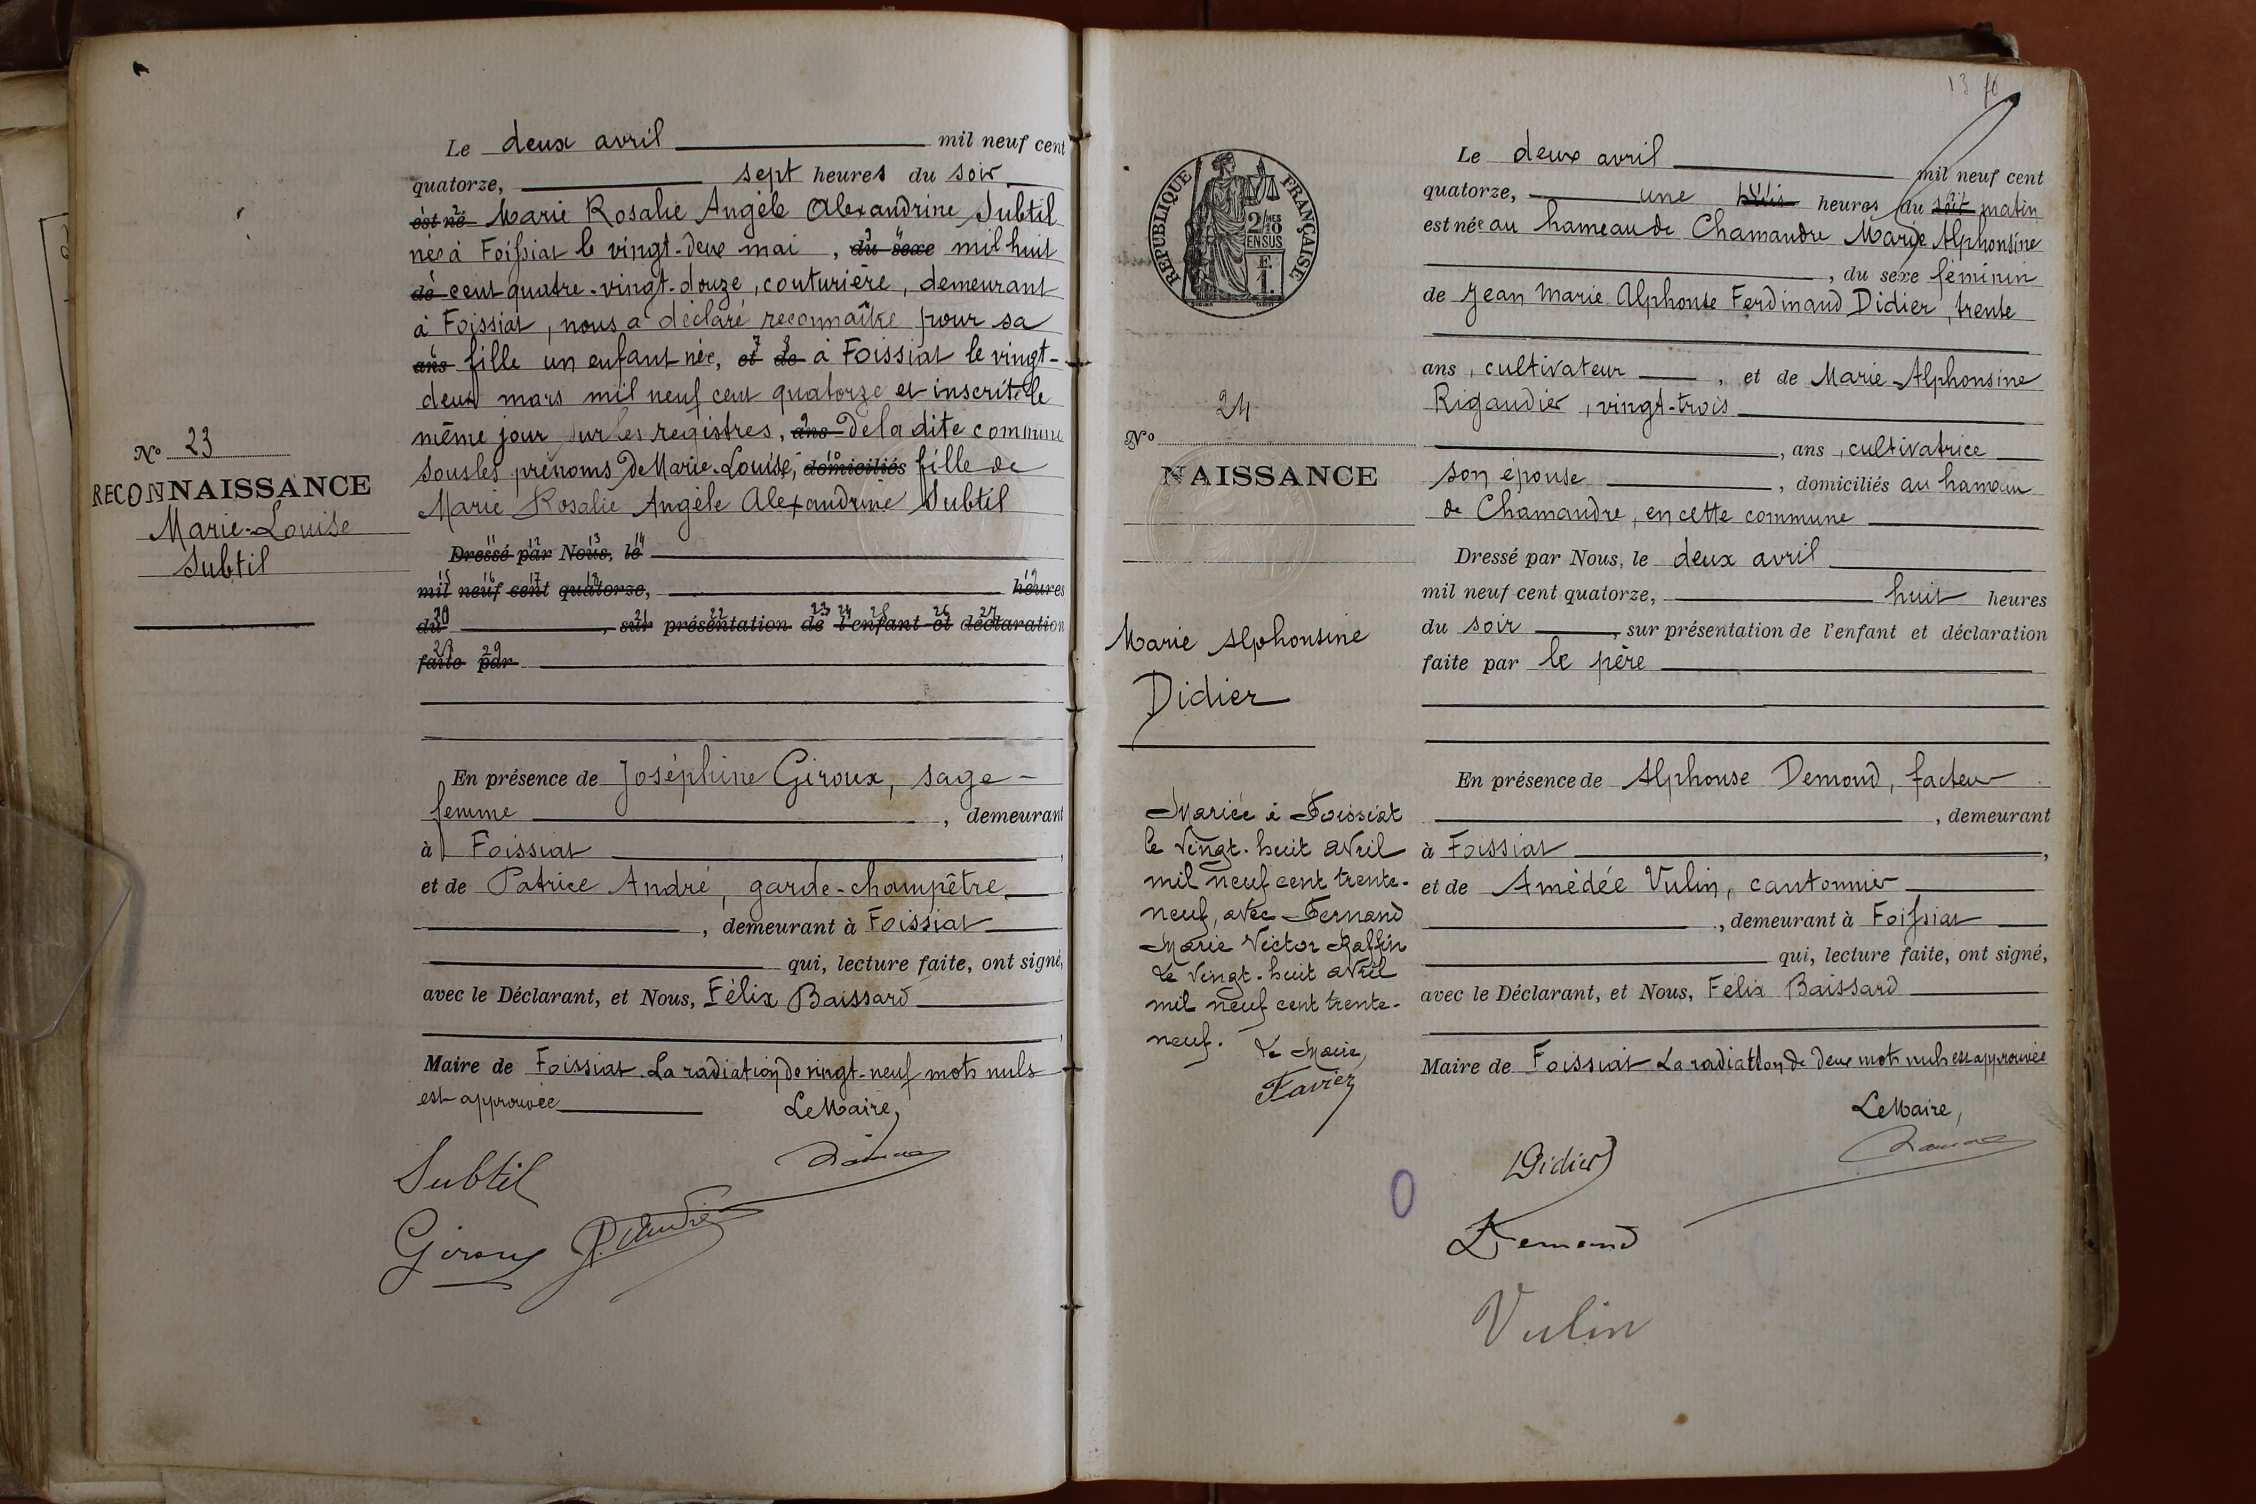 N° 23
RECONNAISSANCE
Marie-Louise
Subtil
Le deux avril mil neuf cent
quatorze, sept heures du soir
est né Marie Rosalie Angèle Alexandrine Subtil
née à Foissiat le vingt-deux mai, du sexe mil huit
de cent quatre-vingt-douze, couturière, demeurant
à Foissiat, nous a déclaré reconnaître pour sa
ans fille un enfant née, et de à Foissiat le vingt-
deux mars mil neuf cent quatorze et inscrite le
même jour sur les registres, ans de la dite commune
sous les prénoms de Marie-Louise, domiciliés fille de
Marie Rosalie Angèle Alexandrine Subtil
Dressé par Nous, le
mil neuf cent quatorze, heures
du , sur présentation de l'enfant et déclaration
faite par
En présence de Joséphine Giroux, sage-
femme , demeurant
à Foissiat ,
et de Patrice André, garde-champêtre,
, demeurant à Foissiat
qui, lecture faite, ont signé,
avec le Déclarant, et Nous, Félix Baissard
,
Maire de Foissiat. La radiation de vingt-neuf mots nuls
est approuvée Le Maire,
Subtil
Giroux P. André
13
RÉPUBLIQUE FRANÇAISE
2/10 EN SUS
E.
1.
N° 24
NAISSANCE
Marie Alphonsine
Didier
Mariée à Foissiat
le vingt-huit avril
mil neuf cent trente-
neuf, avec Fernand
Marie Victor Raffin
Le vingt-huit avril
mil neuf cent trente-
neuf. Le Maire,
Favier
Le deux avril mil neuf cent
quatorze, une heures du soir matin
est née au hameau de Chamandre Marie Alphonsine
, du sexe féminin
de Jean Marie Alphonse Ferdinand Didier, trente
ans, cultivateur , et de Marie-Alphonsine
Rigaudier, vingt-trois
, ans, cultivatrice
son épouse , domiciliés au hameau
de Chamandre, en cette commune
Dressé par Nous, le deux avril
mil neuf cent quatorze, huit heures
du soir , sur présentation de l'enfant et déclaration
faite par le père
En présence de Alphonse Demond, facteur
, demeurant
à Foissiat ,
et de Amédée Vulin, cantonnier
, demeurant à Foissiat
qui, lecture faite, ont signé,
avec le Déclarant, et Nous, Félix Baissard
Maire de Foissiat La radiation de deux mots nuls est approuvée
Le Maire,
Didier
Demond
Vulin